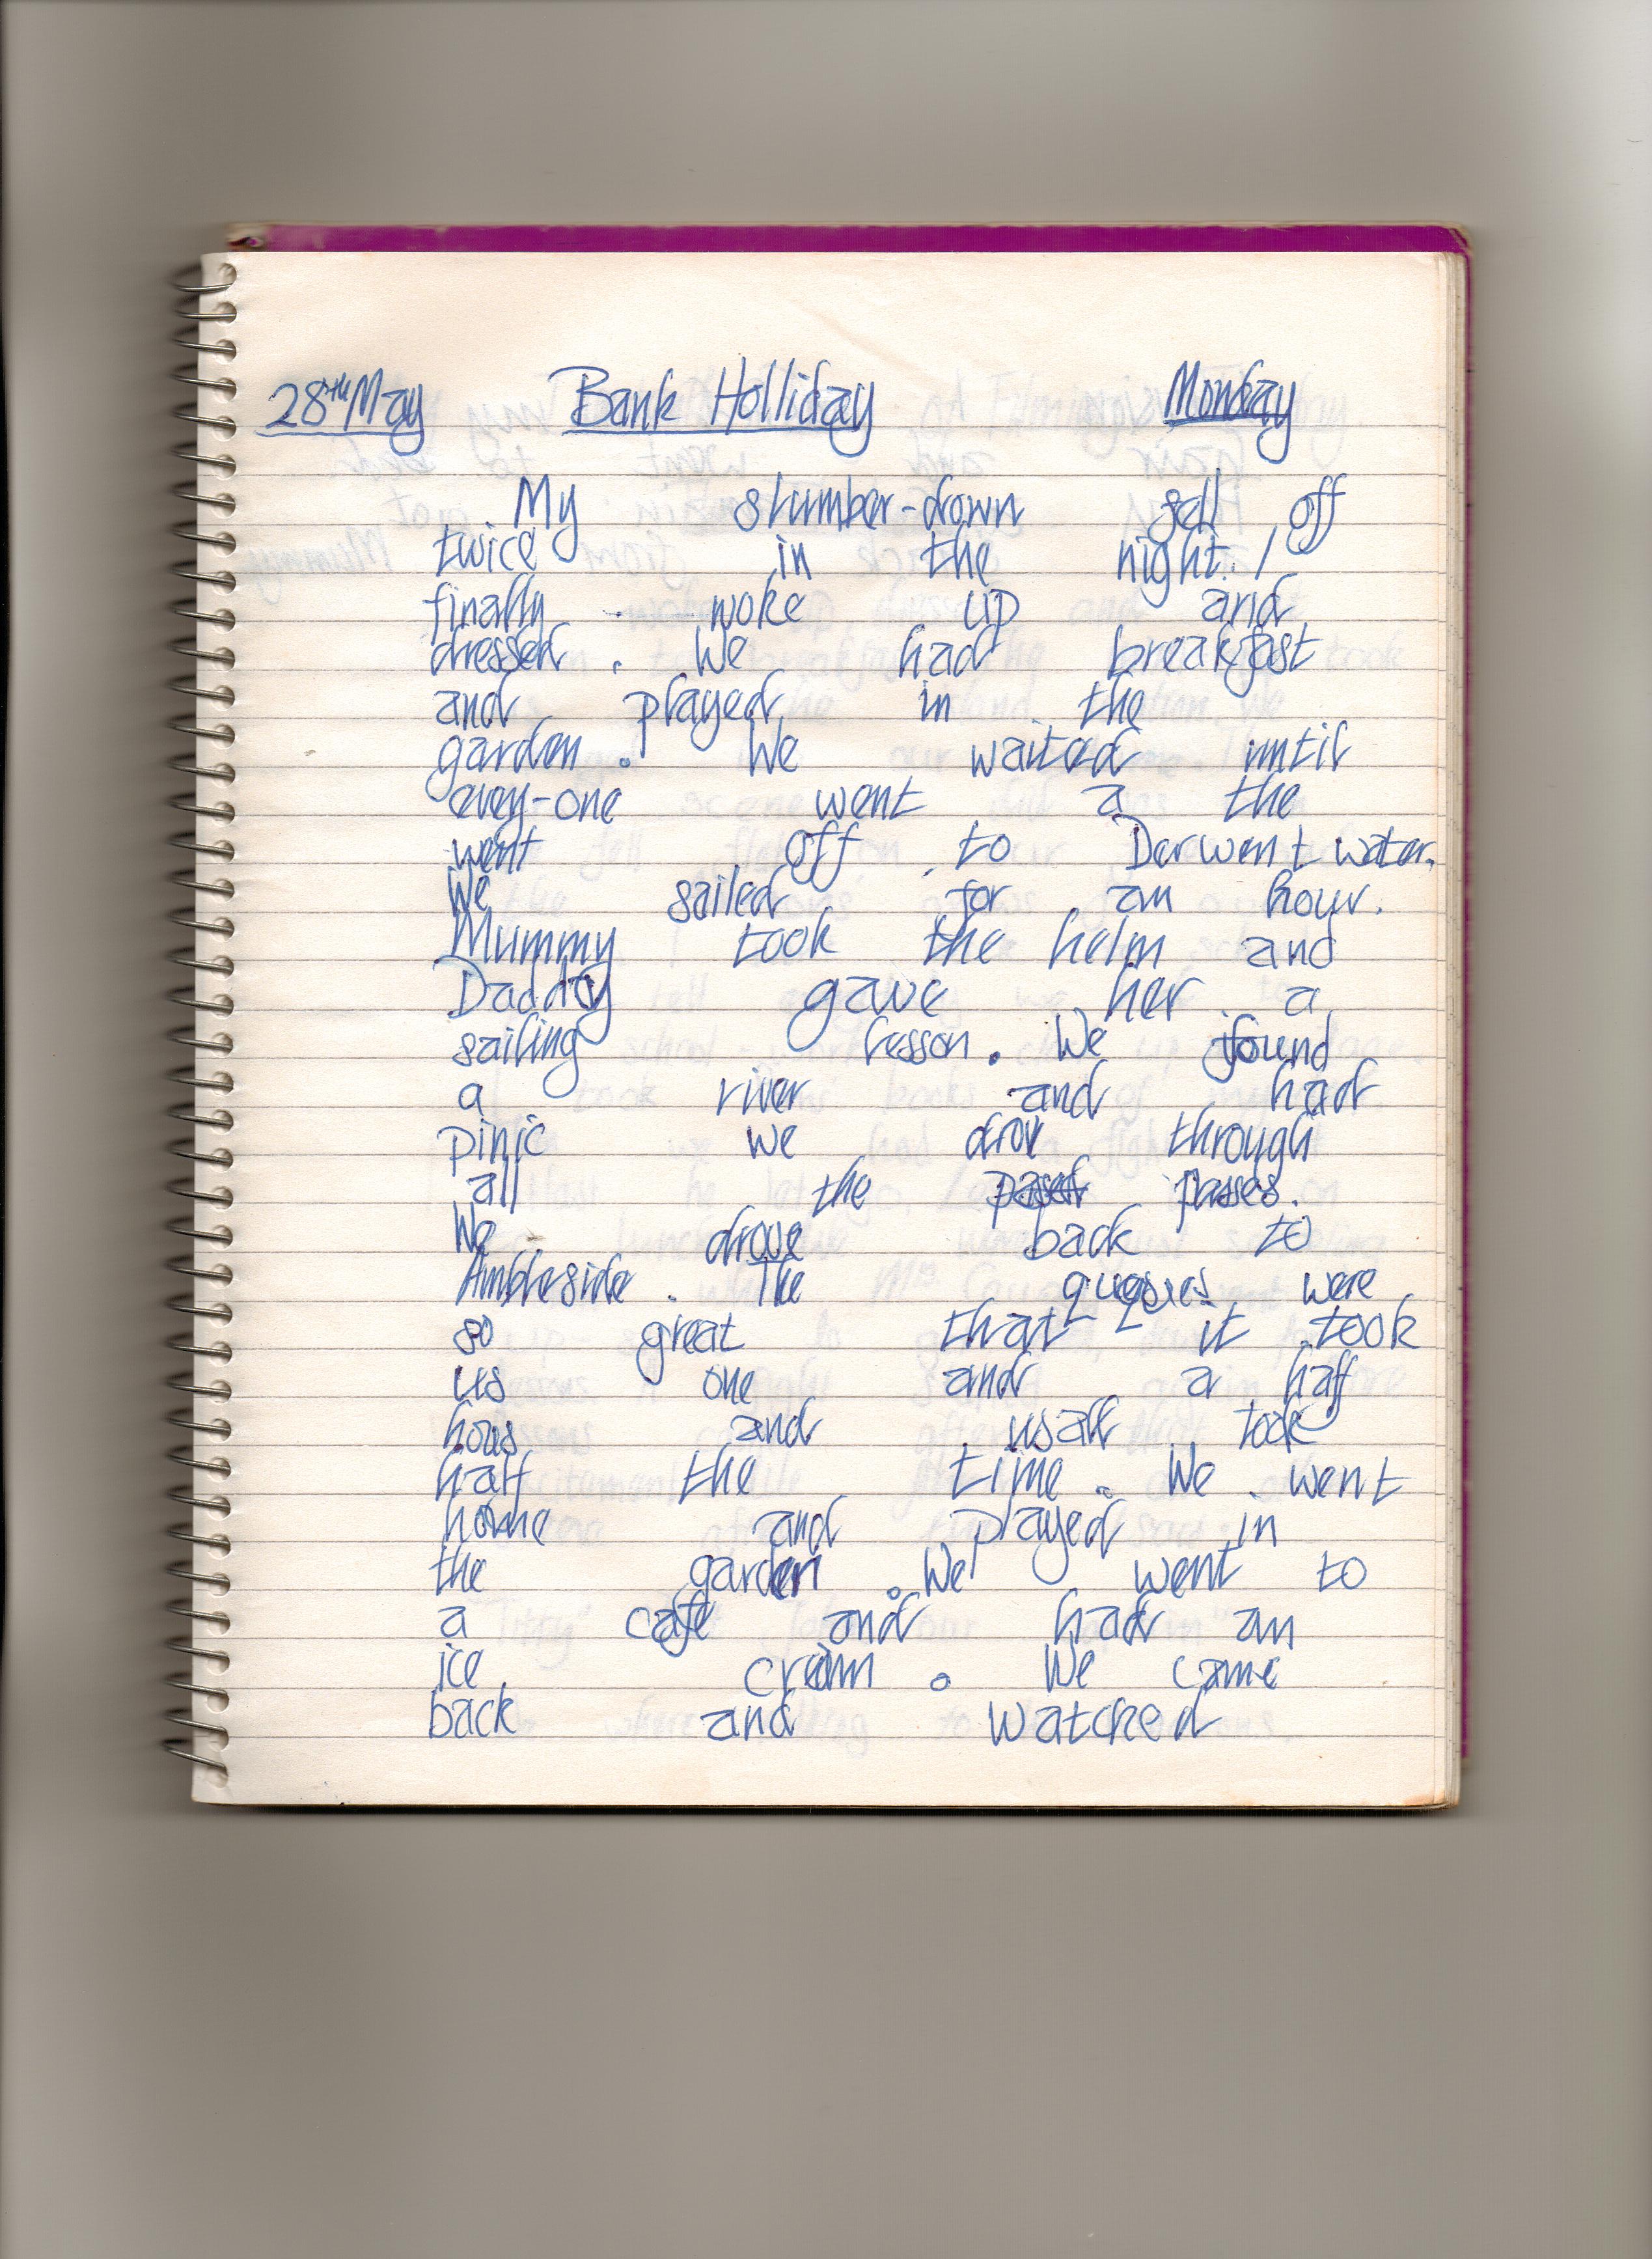 28th May Bank Holliday Monday
My slumber-down fell off
twice in the night. I
finally woke up and
dressed. We had breakfast
and played in the
garden. We waited until
every-one went a the
went off to Derwent water.
We sailed for an hour.
Mummy took the helm and
Daddy gave her a
sailing lesson. We found
a river and had
pinic we drov through
all the passes.
We drove back to
Ambleside. The were
so great that it took
us one and a half
hous and usall took
half the time. We went
home and played in
the garden. We went to
a cafe and had an
ice cream. We came
back and watched